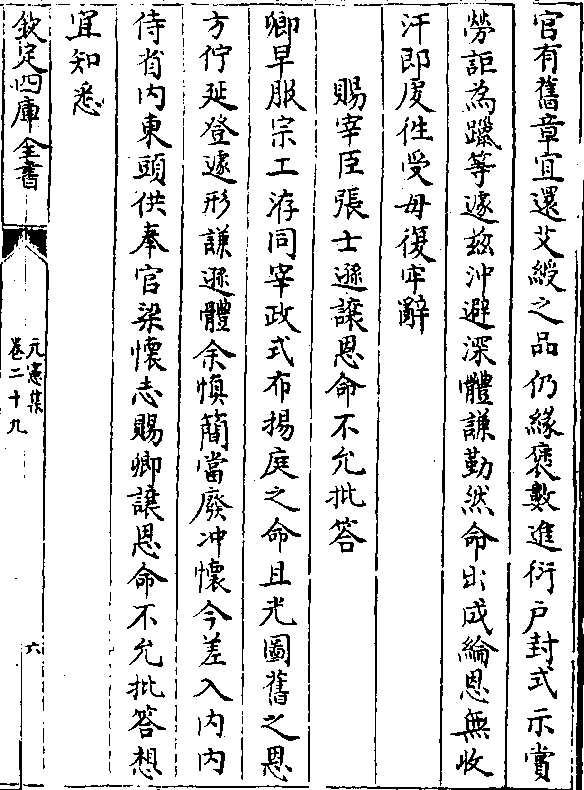 官有舊章宜還艾綬之品仍緣褒數進衍户封式示賞
勞詎為躐等遽兹沖避深體謙勤然命出成綸恩無收
汗即宜往受毋復牢辭
賜宰臣張士遜讓恩命不允批答
卿早服宗工洊同宰政式布揚庭之命且光圖舊之恩
方佇延登遽形謙遜體余慎簡當廢冲懷今差入内内
侍省内東頭供奉官梁懷志賜卿讓恩命不允批答想
宜知悉
欽定四庫全書
元憲集
卷二十九
六